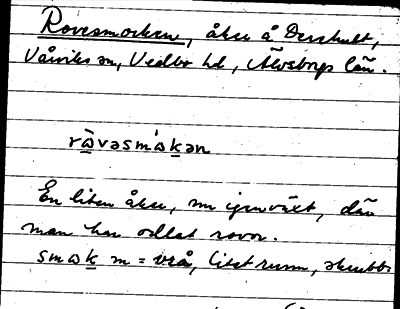 Rovesmocken, åker å Derhult,
Vårviks sn, Vedbo hd, Älvsborgs län.
ràvəsmɷkən
En liten åker, nu igenväxt, där
man har odlat rovor.
smɷk m = vrå, litet rum, skrubb